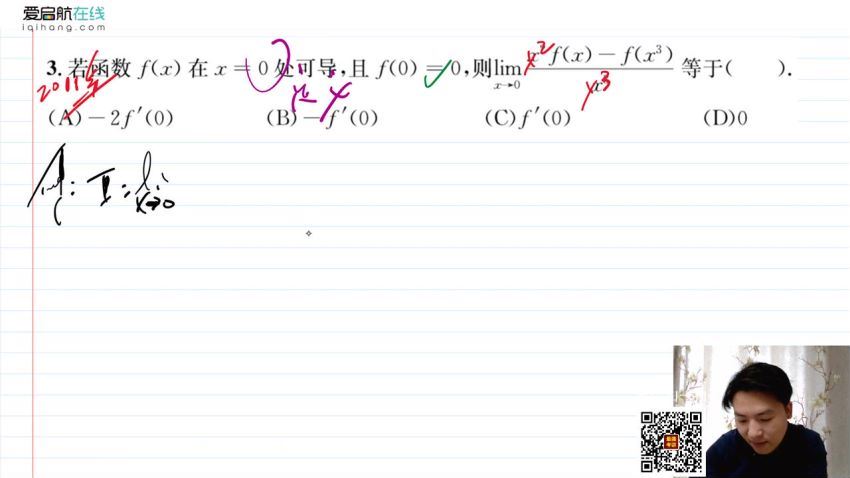 爱启航在线
iqihang.com
3. 若函数 f(x) 在 x = 0 处可导,且 f(0) = 0,则 lim x→0 (x²f(x) − f(x³))/x³ 等于( ).
2011年
(A) − 2f′(0) (B) − f′(0) (C) f′(0) (D) 0
I = lim x→0